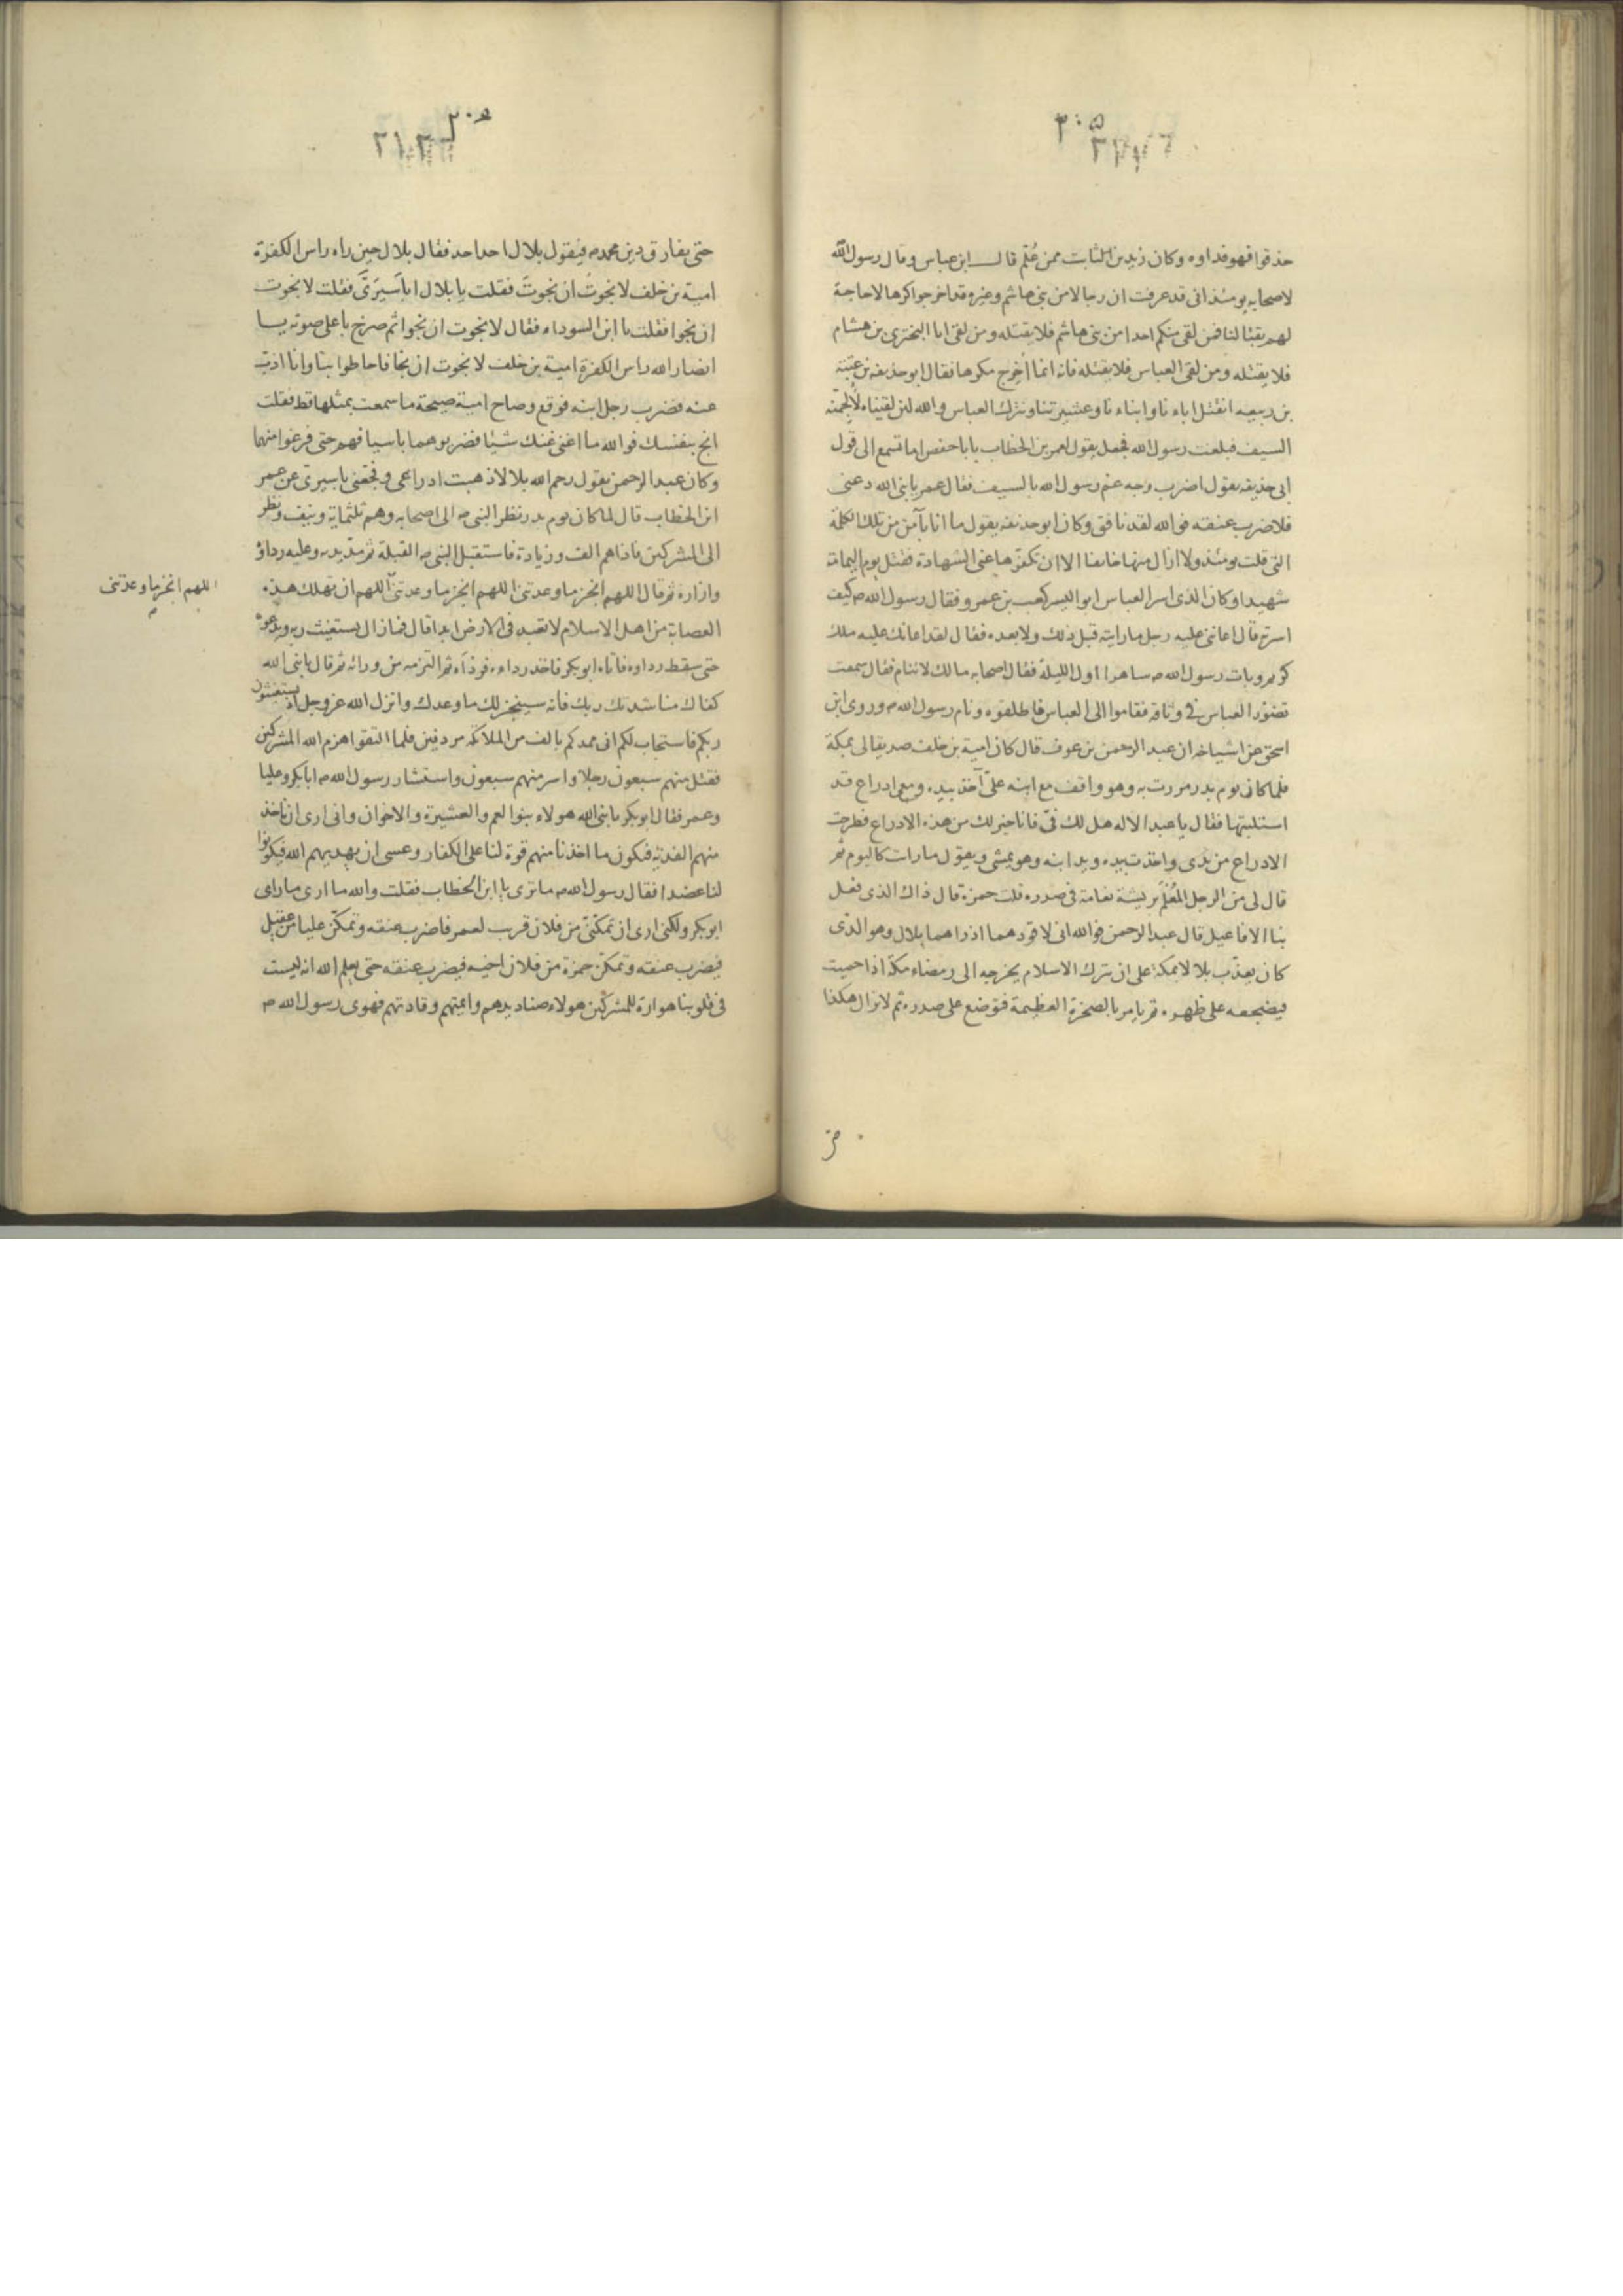 ٢٠٥
حذقوا فهو فداوه وكان زيد بن الثابت ممن عُلِّم قال ابن عباس وقال رسول الله
لاصحابه يومئذ انى قد عرفت ان رجالا من بنى هاشم وغيره قد اخرجوا كرها لا حاجة
لهم بقتالنا فمن لقى منكم احدا من بنى هاشم فلا يقتله ومن لقى ابا البخترى بن هشام
فلا يقتله ومن لقى العباس فلا يقتله فانه انما اُخرِج مكرها فقال ابو حذيفه بن عتبة
بن ربيعه انقتل اباءنا وابناءنا وعشيرتنا ونترك العباس والله لئن لقيناه لألجمنّه
السيف فبلغت رسول الله فجعل يقول لعمر بن الخطاب يا باحفص اما تسمع الى قول
ابى حذيفه يقول اضرب وجه عم رسول الله بالسيف فقال عمر يا نبى الله دعنى
فلاضرب عنقه فوالله لقد نافق وكان ابو حذيفه يقول ما انا بآمن من تلك الكلمة
التى قلت يومئذ ولا ازال منها خائفا الا ان تكفّرها عنى الشهادة فقتل يوم اليمامة
شهيدا وكان الذى اسر العباس ابو اليسر كعب بن عمرو فقال رسول الله ص كيف
اسرته قال اعاننى عليه رجل ما رايته قبل ذلك ولا بعده فقال لقد اعانك عليه ملك
كريم وبات رسول الله ص ساهرا اول الليلة فقال اصحابه مالك لا تنام فقال سمعت
تضوّر العباس فى وثاقه فقاموا الى العباس فاطلقوه ونام رسول الله ص وروى ابن
اسحق عن اشياخه ان عبد الرحمن بن عوف قال كان امية بن خلف صديقا لى بمكة
فلما كان يوم بدر مررت به وهو واقف مع ابنه علىّ آخذ بيده ومعى ادراع قد
استلبتها فقال يا عبد الاله هل لك فىّ فانا خير لك من هذه الادراع فطرحت
الادراع من يدى واخذت بيده ويد ابنه وهو يمشى ويقول ما رات كاليوم ثم
قال لى من الرجل المُعْلَم بريشة نعامة فى صدره قلت حمزة قال ذاك الذى فعل
بنا الافاعيل قال عبد الرحمن فوالله انى لاقودهما اذ راهما بلال وهو الذى
كان يعذّب بلالا بمكة على ان يترك الاسلام يخرجه الى رمضاء مكة اذا حميت
فيضجعه على ظهره ثم يامر بالصخرة العظيمة فتوضع على صدره ثم لا تزال هكذا
حتى يفارق دين محمد ص فيقول بلال احد احد فقال بلال حين راه راس الكفرة
امية بن خلف لا نجوتُ ان نجوتَ فقلت يا بلال اباَسيرَىَّ فقلت لا نجوت
ان نجوا فقلت يا ابن السوداء فقال لا نجوت ان نجوا ثم صرخ باعلى صوته يا
انصار الله راس الكفرة امية بن خلف لا نجوت ان نجا فاحاطوا بنا وانا اذب
عنه فضرب رجل ابنه فوقع وصاح امية صيحة ما سمعت بمثلها قط فقلت
انج بنفسك فوالله ما اغنى عنك شيئا فضربوهما باسيافهم حتى فرغوا منهما
وكان عبد الرحمن يقول رحم الله بلالا ذهبت ادراعى وفجّعنى باسيرىّ عن عمر
ابن الخطاب قال لما كان يوم بدر نظر النبى ص الى اصحابه وهم ثلثماية ونيف ونظر
الى المشركين فاذا هم الف وزيادة فاستقبل النبى ص القبلة ثم مدّ يديه وعليه رداؤ
وازاره ثم قال اللهم انجز ما وعدتنى اللهم انجز ما وعدتنى اللهم ان تهلك هذه
اللهم انجز ما وعدتنى
العصابة من اهل الاسلام لا تعبد فى الارض ابدا قال فما زال يستغيث ربه ويدعوه
حتى سقط رداوه فاتاه ابو بكر فاخذ رداءه فردّاه ثم التزمه من ورائه ثم قال يا نبى الله
كفاك مناشدتك ربك فانه سينجز لك ما وعدك وانزل الله عز وجل اذ يستغيثون
ربكم فاستجاب لكم انى ممدكم بالف من الملائكة مردفين فلما التقوا هزم الله المشركين
فقتل منهم سبعون رجلا واسر منهم سبعون واستشار رسول الله ص ابا بكر وعليا
وعمر فقال ابو بكر يا نبى الله هولاء بنوا العم والعشيرة والاخوان وانى ارى ان تاخذ
منهم الفدية فيكون ما اخذنا منهم قوة لنا على الكفار وعسى ان يهديهم الله فيكونوا
لنا عضدا فقال رسول الله ص ما ترى يا ابن الخطاب فقلت والله ما ارى ما راى
ابو بكر ولكنى ارى ان تمكننّى من فلان قرب لعمر فاضرب عنقه وتمكّن عليا من عقيل
فيضرب عنقه وتمكّن حمزة من فلان اخيه فيضرب عنقه حتى يعلم الله انه ليست
فى قلوبنا هوادة للمشركين هولاء صناديدهم وائمتهم وقادتهم فهوى رسول الله ص